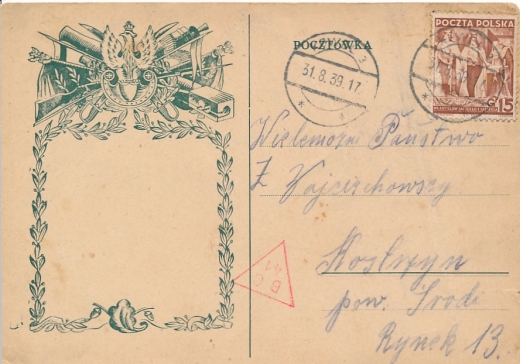 POCZTÓWKA
31.8.39.17
3
POCZTA POLSKA
GR 15
Wielemożni Państwo
Z Wojciechowscy
Kostrzyn
pow. Środa
Rynek 13.